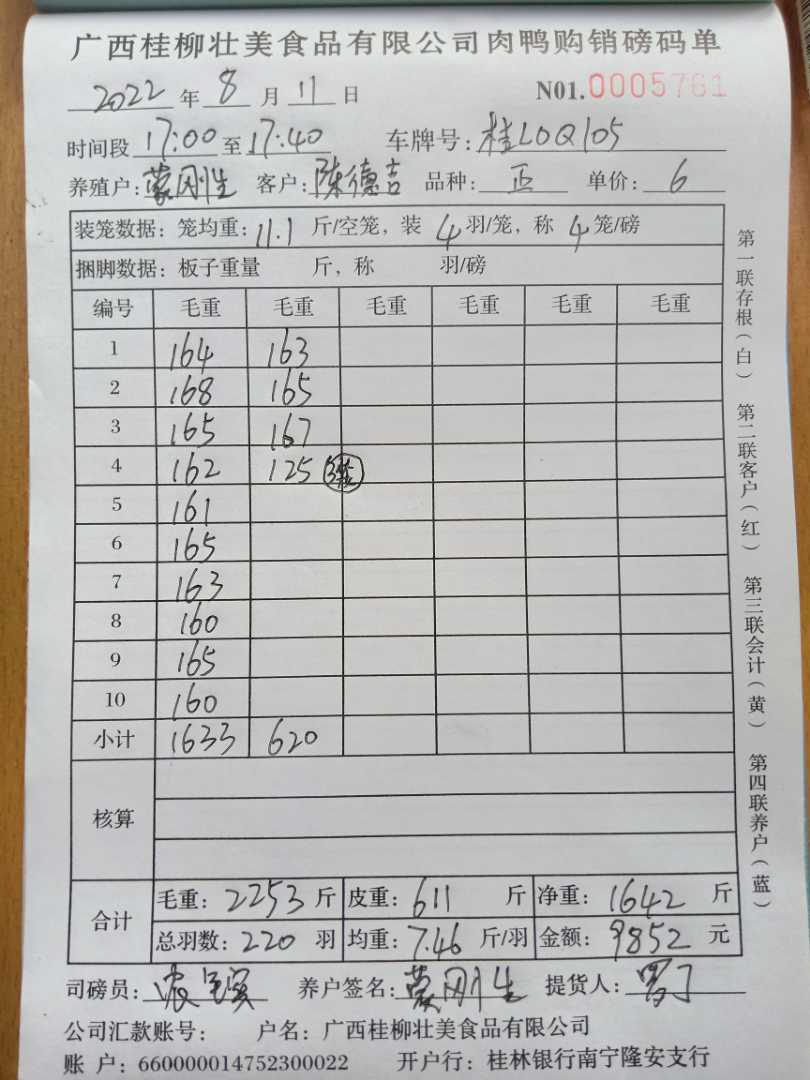 广西桂柳壮美食品有限公司肉鸭购销磅码单
2022 年 8 月 11 日 N01.0005761
时间段 17:00 至 17:40 车牌号: 桂L0Q105
养殖户: 蒙刚生 客户: 陈德吉 品种: 正 单价: 6
装笼数据: 笼均重: 11.1 斤/空笼, 装 4 羽/笼, 称 4 笼/磅
捆脚数据: 板子重量 斤, 称 羽/磅
编号 毛重 毛重 毛重 毛重 毛重 毛重
1 164 163
2 168 165
3 165 167
4 162 125
5 161
6 165
7 163
8 160
9 165
10 160
小计 1633 620
核算
合计
毛重: 2253 斤 皮重: 611 斤 净重: 1642 斤
总羽数: 220 羽 均重: 7.46 斤/羽 金额: 9852 元
司磅员: 养户签名: 蒙刚生 提货人:
公司汇款账号: 户名: 广西桂柳壮美食品有限公司
账 户: 660000014752300022 开户行: 桂林银行南宁隆安支行
第一联存根(白) 第二联客户(红) 第三联会计(黄) 第四联养户(蓝)